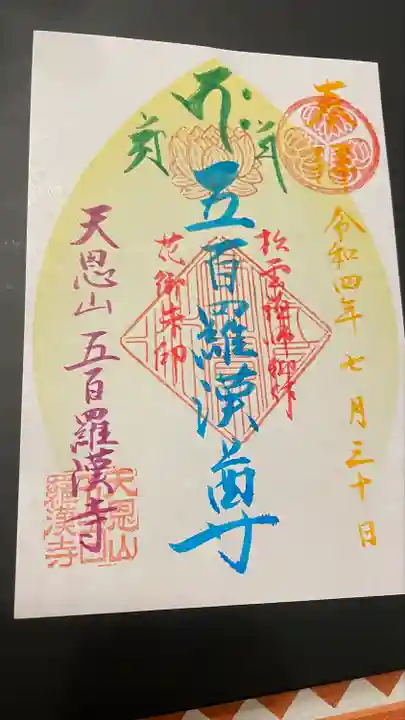 奉拝
令和四年七月三十日
松雲禅師御作
五百羅漢尊
花御朱印
天恩山五百羅漢寺
天恩山
羅漢寺